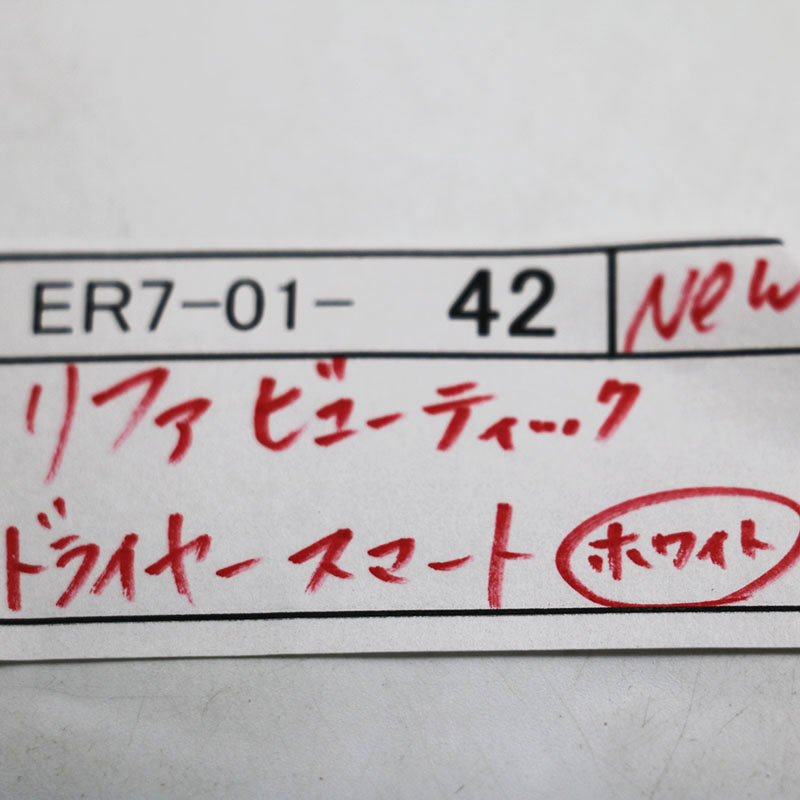 ER7-01- 42 New
リファ ビューティック
ドライヤー スマート ホワイト